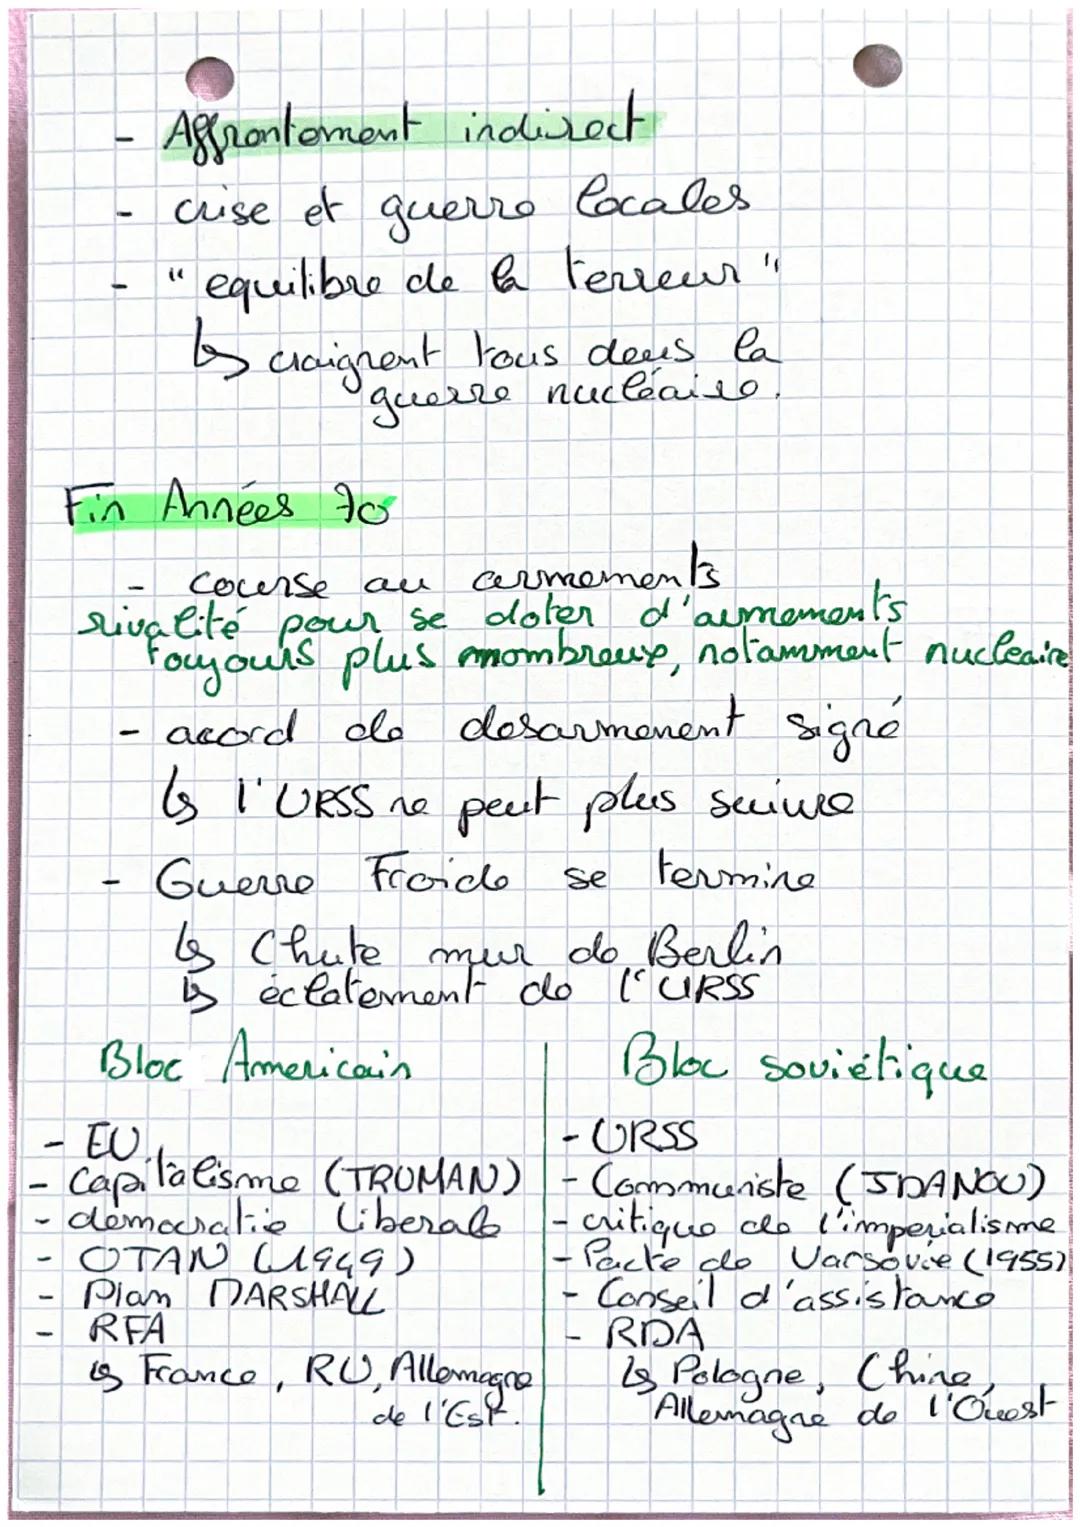 - Affrontement indirect
- crise et guerre locales
- "equilibre de la terreur"
↳ craignent tous deus la
guerre nucléaire.
Fin Années 70
- course au armements
rivalité pour se doter d'armements
toujours plus nombreux, notamment nucleaire
- acord de desarmement signé
↳ l'URSS ne peut plus suivre
- Guerre Froide se termine
↳ Chute mur de Berlin
↳ éclatement de l'URSS
Bloc Americain
- EU
- Capitalisme (TRUMAN)
- democratie liberale
- OTAN (1949)
- Plan MARSHALL
- RFA
↳ France, RU, Allemagne
de l'Est.
Bloc soviétique
- URSS
- Communiste (JDANOV)
- critique de l'imperialisme
- Pacte de Varsovie (1955)
- Conseil d'assistance
- RDA
↳ Pologne, Chine,
Allemagne de l'Ouest